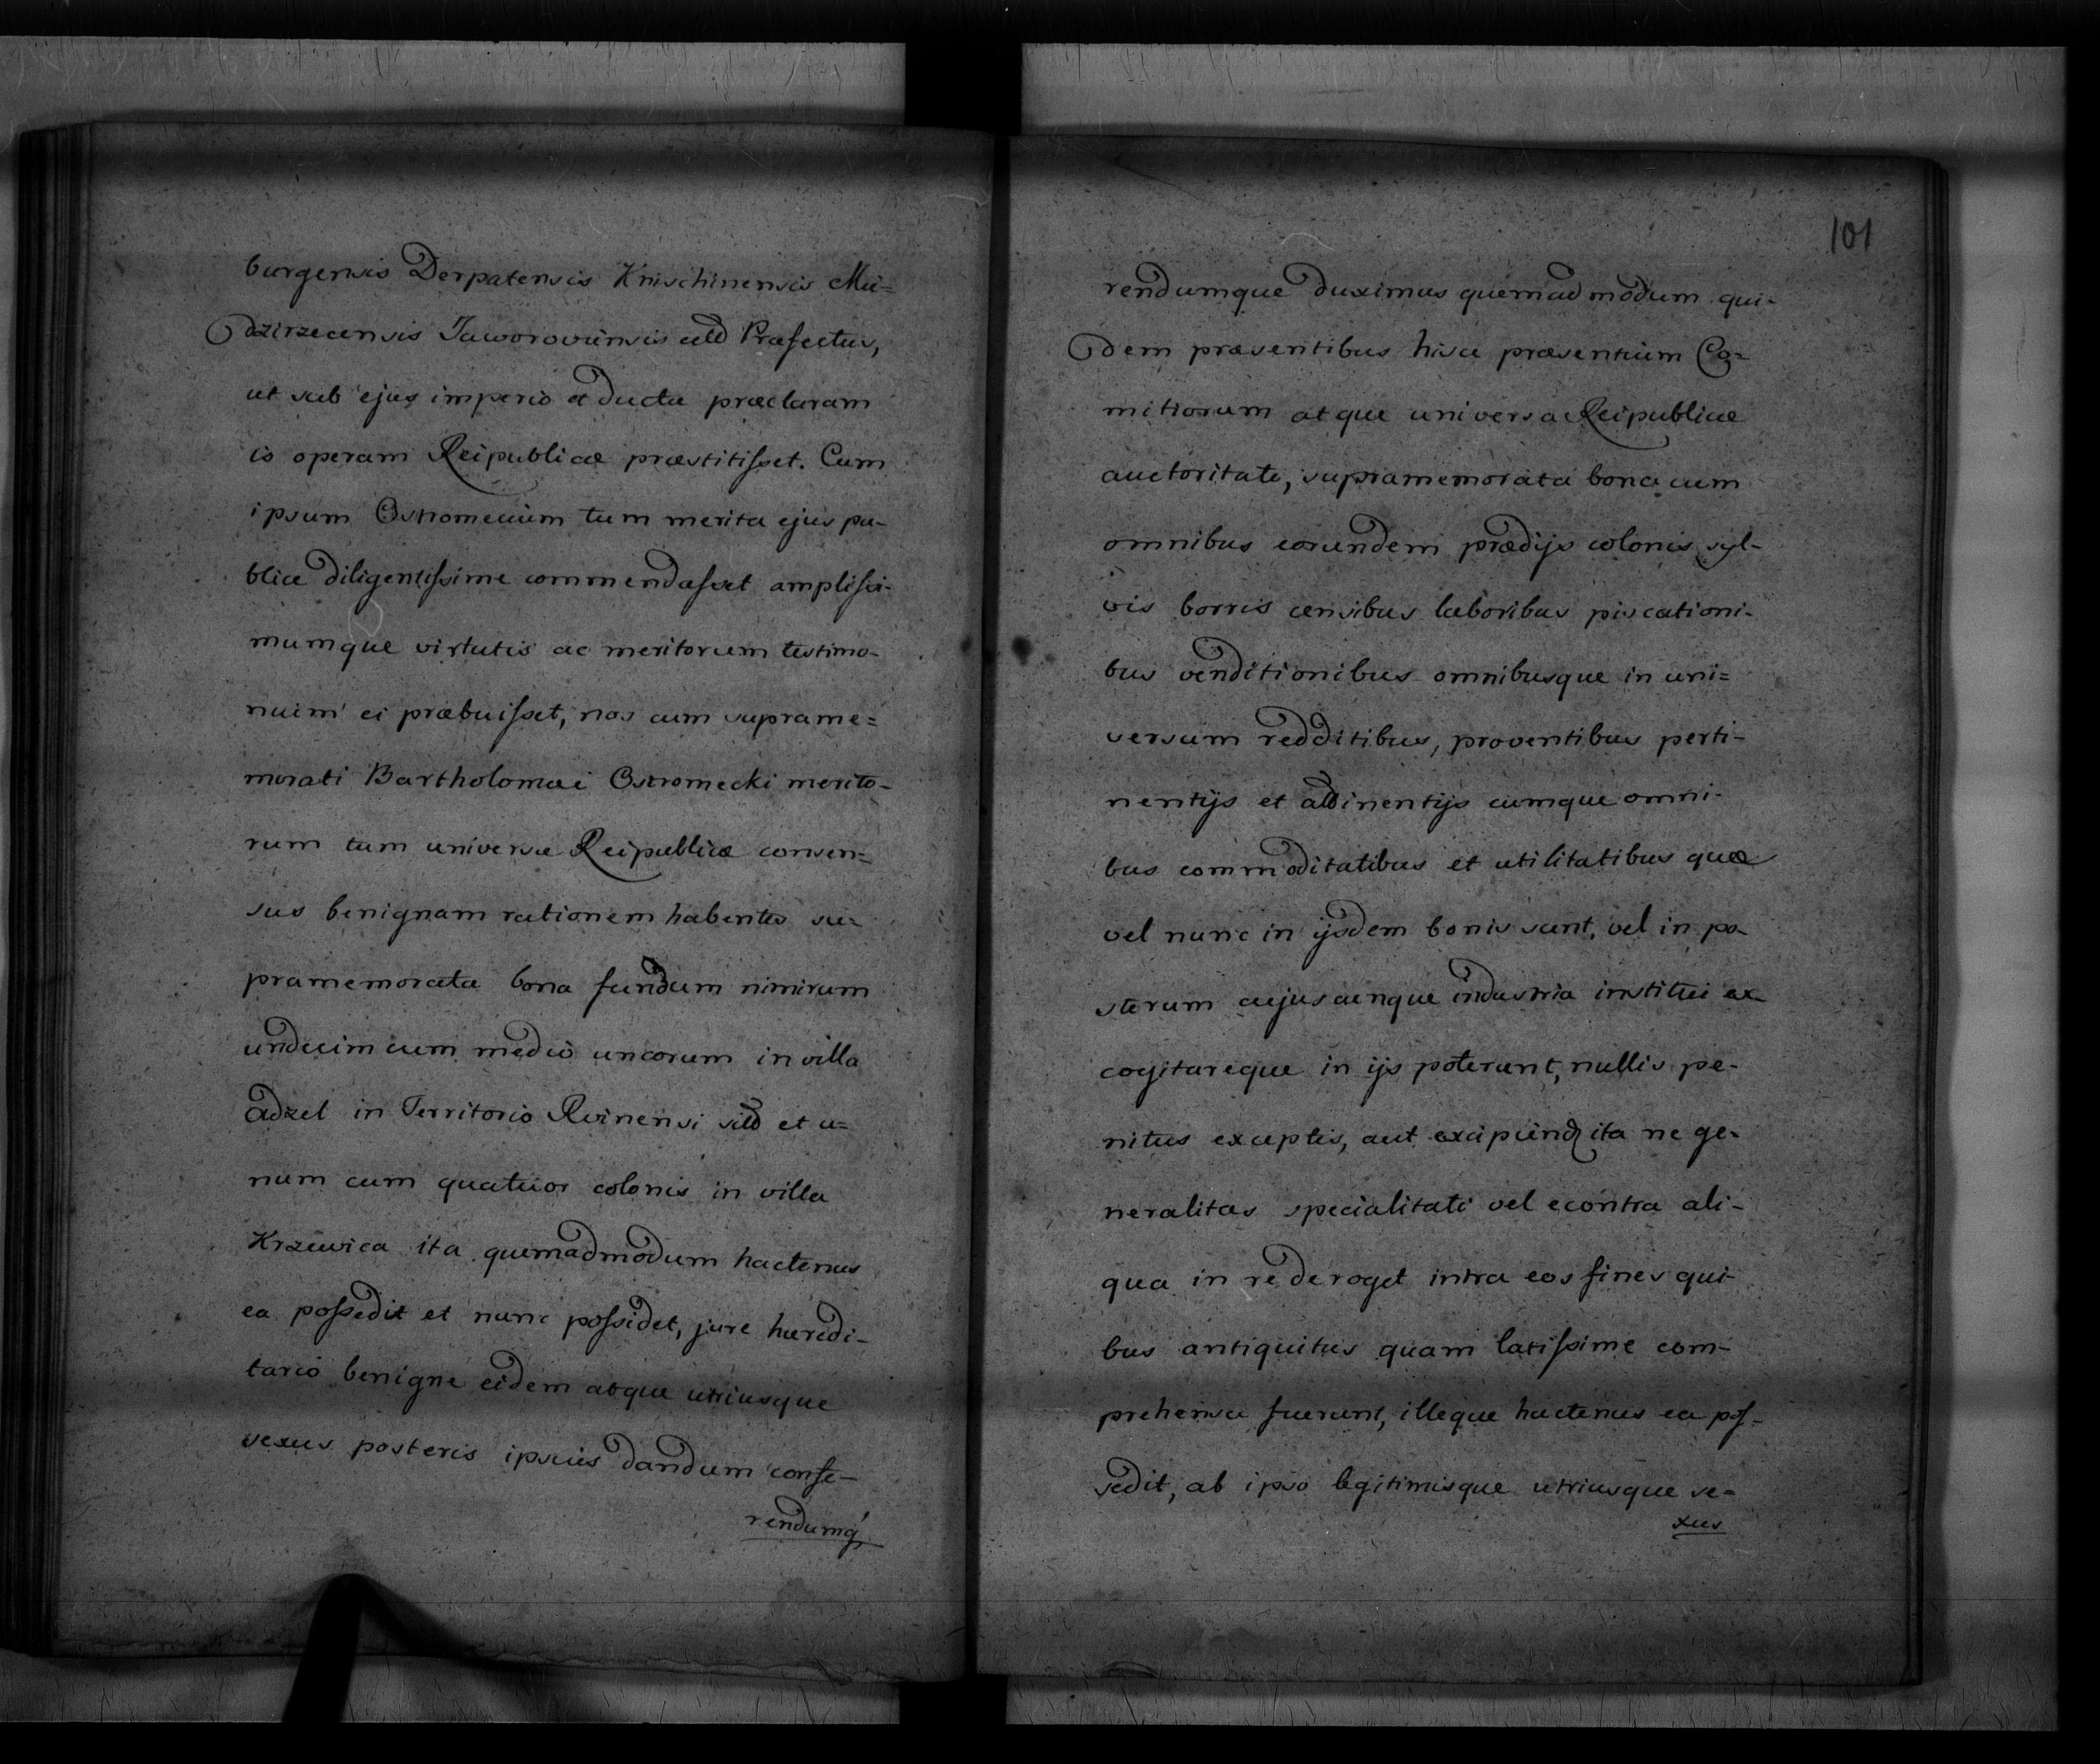 burgensis Derpatensis Knischinensis Mie=
dzirzecensis Jaworoviensis alld Præfectus,
ut sub ejus imperio et ductu præclaram
is operam Reipublicæ præstitisset. Cum
ipsum Ostromecium tum merita ejus pu-
blice diligentissime commendasset amplissi-
mumque virtutis ac meritorum testimo-
nium ei præbuisset, nos cum suprame=
morati Bartholomæi Ostromecki merito-
rum tum universæ Reipublicæ consen=
sus benignam rationem habentes su=
pramemorata bona fundum nimirum
undecim cum medio uncorum in villa
Adzel in Territorio Rvinensi sild et u=
num cum quatuor colonis in villa
Krzewica ita quemadmodum hactenus
ea possedit et nunc possidet, jure hæredi-
tario benigne eidem atque utriusque
sexus posteris ipsius dandum confe-
rendumq́
101
rendumque duximus quemadmodum qui-
dem præsentibus hisce præsentium Co=
mitiorum atque universæ Reipublicæ
auctoritate, supramemorata bona cum
omnibus eorundem prædijs colonis syl-
vis borris censibus laboribus piscationi-
bus venditionibus omnibusque in uni=
versum redditibus, proventibus perti-
nentijs et attinentijs cumque omni-
bus commoditatibus et utilitatibus quæ
vel nunc in ijsdem bonis sunt, vel in po-
sterum cujuscunque industria institui ex-
cogitareque in ijs poterunt, nullis pe-
nitus exceptis, aut excipiend ita ne ge-
neralitas specialitati vel econtra ali-
qua in re deroget intra eos fines qui-
bus antiquitus quam latissime com-
prehensa fuerunt, illeque hactenus ea pos-
sedit, ab ipso legitimisque utriusque se=
xus